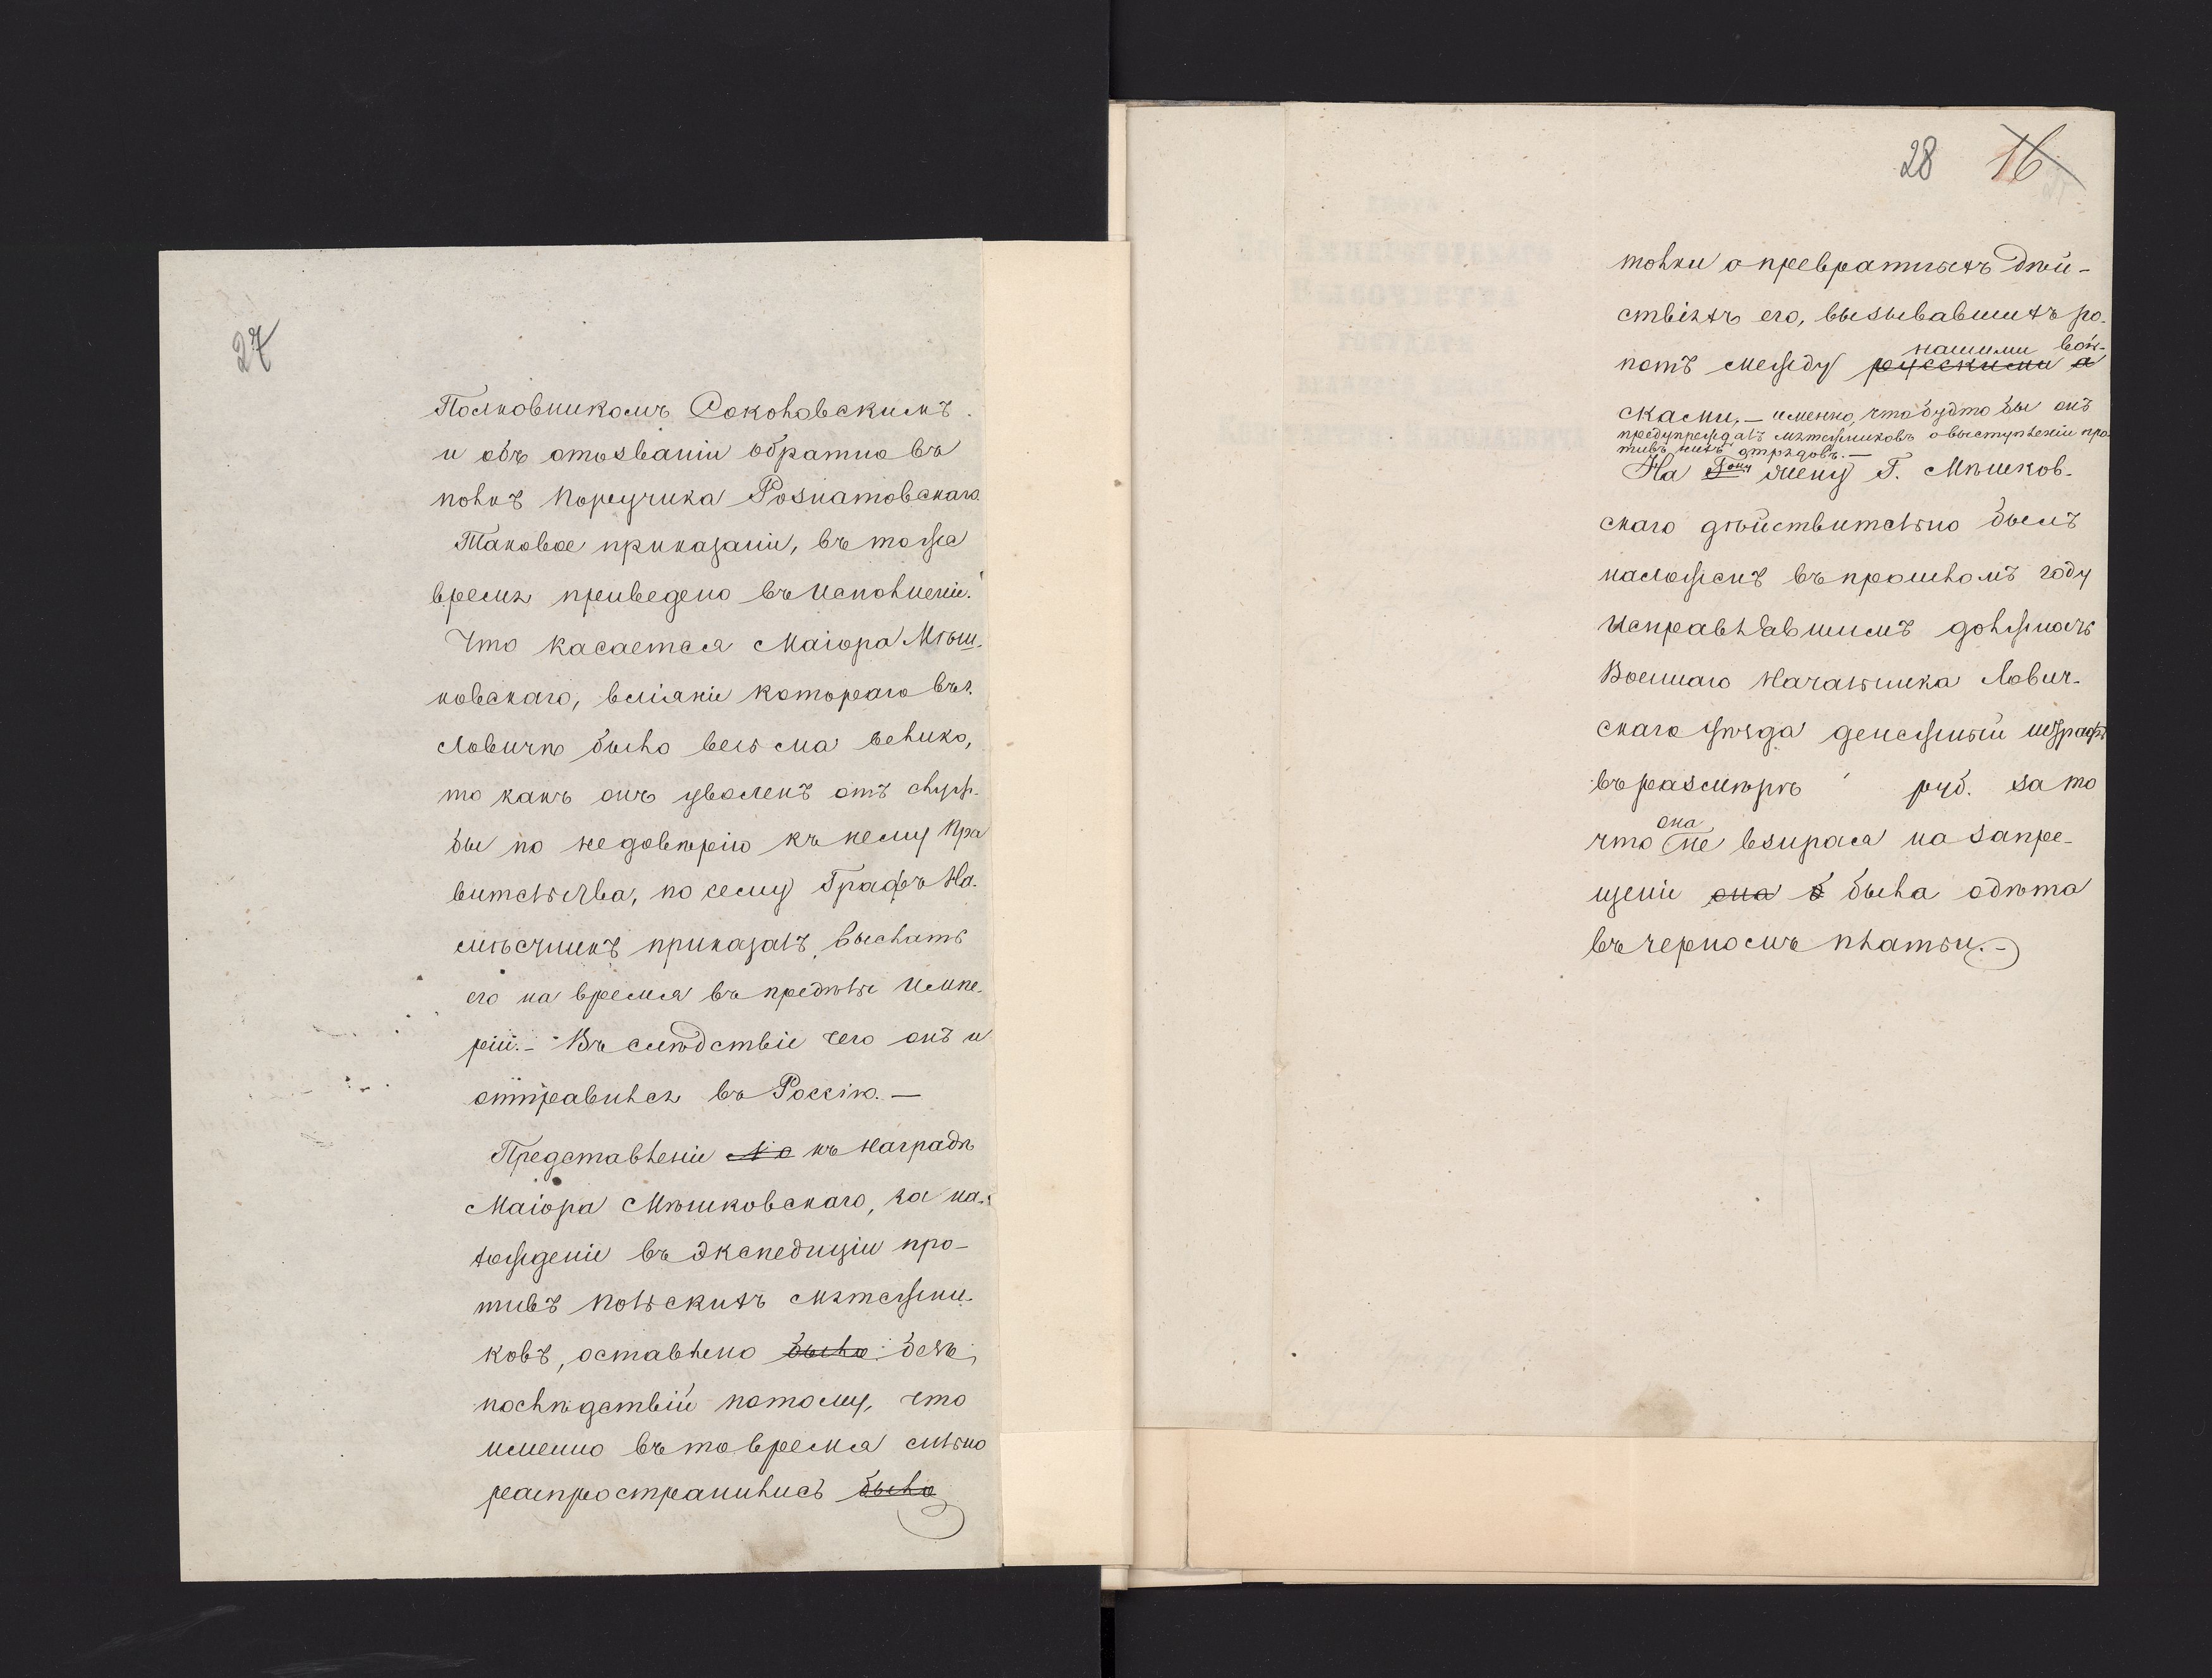 27
Полковникомъ Соколовскимъ
и объ отозваніи обратно въ
полкъ Поручика Рознатовскаго.
Таковое приказаніе, въ тоже
время приведено въ исполненіе.
Что касается Маіора Мѣш-
ковскаго, вліяніе котораго въ г.
Ловичѣ было весьма велико,
то какъ онъ уволенъ отъ служ-
бы по недовѣрію къ нему Пра
вительства, по сему Графъ На-
мѣстникъ приказалъ, выслать
его на время въ предѣлы Импе-
ріи.- Въ слѣдствіе чего онъ и
отправился въ Россію.—
Представленіе къ наградѣ
Маіора Мѣшковскаго, за на-
хожденіе въ экспедиціи про-
тивъ Польскихъ мятежни-
ковъ, оставлено было безъ
послѣдствій потому, что
именно въ то время сильно
распространились было
28 16
толки о превратныхъ дѣй-
ствіяхъ его, вызывавшихъ ро-
нашими вой-
потъ между русскими а
сками,— именно, что будто бы онъ
предупреждалъ мятежниковъ о выступленіи про-
тивъ нихъ отрядовъ.—
На жену Г. Мѣшков-
скаго дѣйствительно былъ
наложенъ въ прошломъ году
Исправлявшимъ должность
Военнаго Начальника Лович-
скаго уѣзда денежный штрафъ
въ размѣрѣ руб. за то
она
что не взирая на запре-
щеніе она б была одѣта
въ черномъ платьи.-